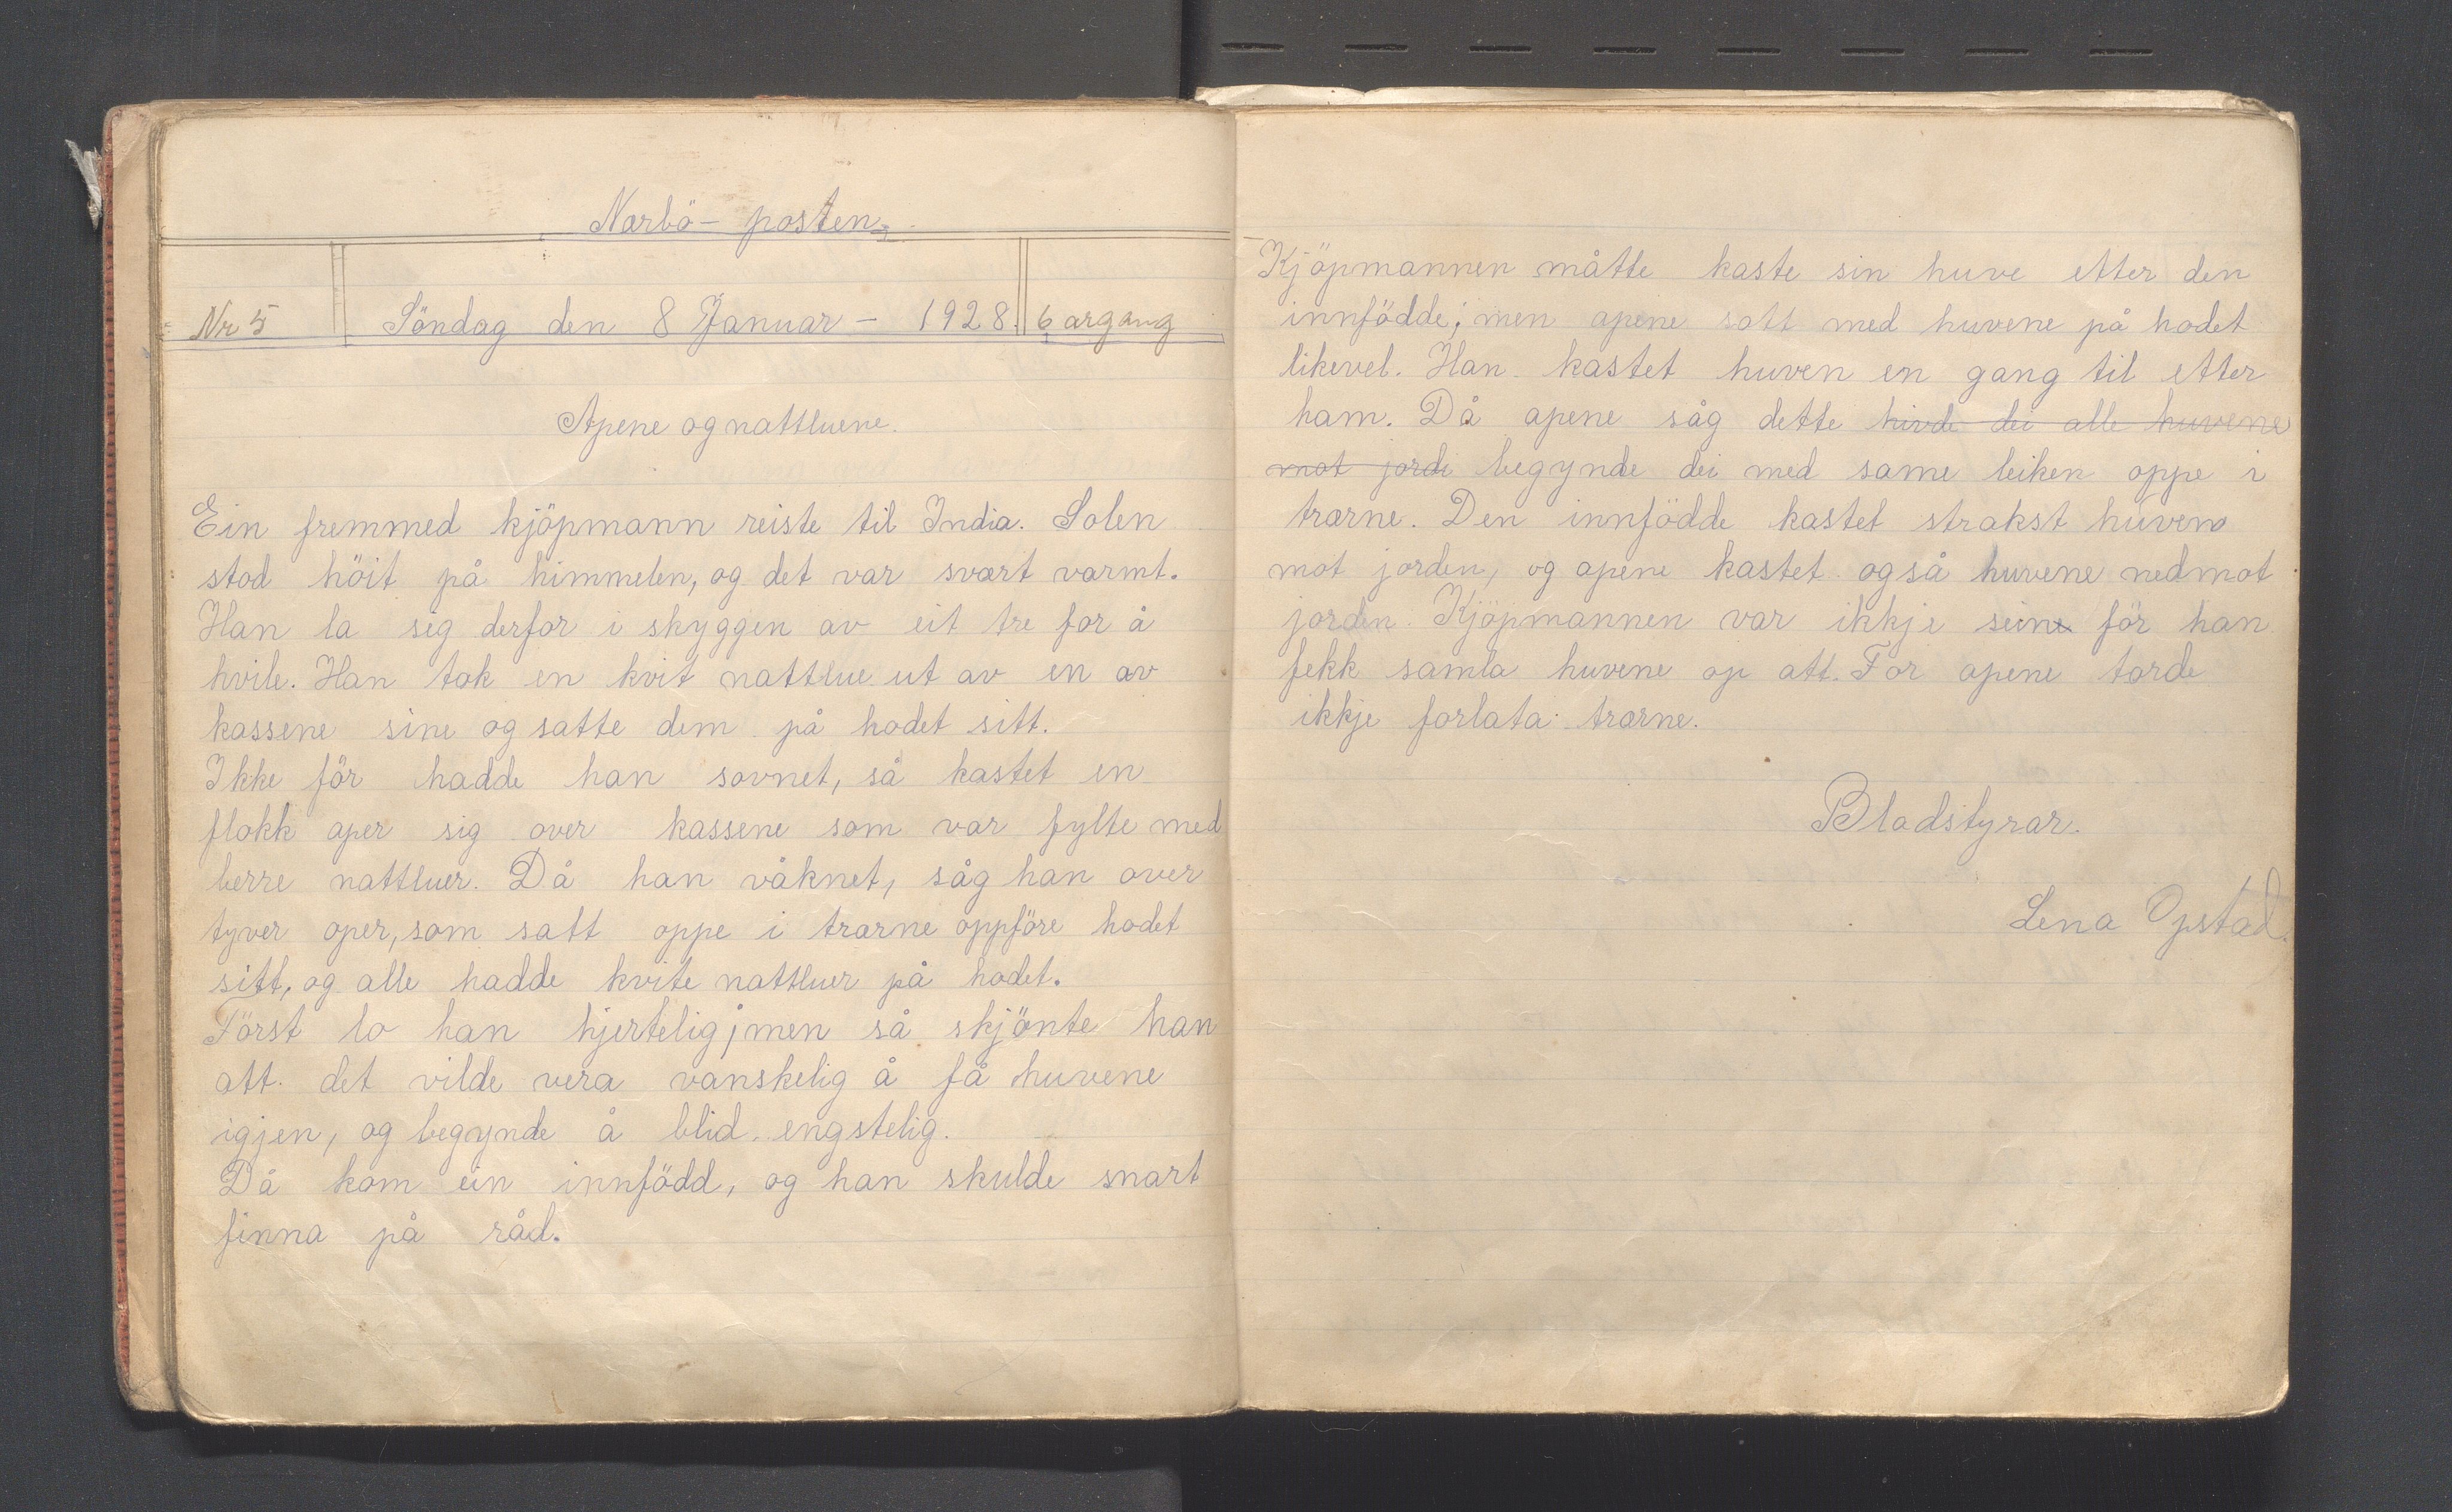 Nærbö-posten.
Nr 5 Söndag den 8 Januar - 1928. 6 argang
Apene og nattluene.
Ein fremmed kjöpmann reiste til India. Solen
stod höit på himmelen, og det var svært varmt.
Han la sig derfor i skyggen av eit tre for å
hvile. Han tok en kvit nattlue ut av en av
kassene sine og satte dem på hodet sitt.
Ikke för hadde han sovnet, så kastet en
flokk aper sig over kassene som var fylte med
berre nattluer. Då han våknet, såg han over
tyver aper, som satt oppe i trærne oppföre hodet
sitt, og alle hadde kvite nattluer på hodet.
Först lo han hjertelig; men så skjönte han
att det vilde vera vanskelig å få huvene
igjen, og begynde å blid engstelig.
Då kom ein innfödd, og han skulde snart
finna på råd.
Kjöpmannen måtte kaste sin huve etter den
innfödde; men apene satt med huvene på hodet
likevel. Han kastet huven en gang til etter
ham. Då apene såg dette hivde dei alle huvene
mot jordi begynde dei med same leiken oppe i
trærne. Den innfödde kastet strakst huven
mot jorden, og apene kastet også huvene ned mot
jorden. Kjöpmannen var ikkje sein för han
fekk samla huvene op att. For apene torde
ikkje forlata trærne.
Bladstyrar.
Lena Opstad.